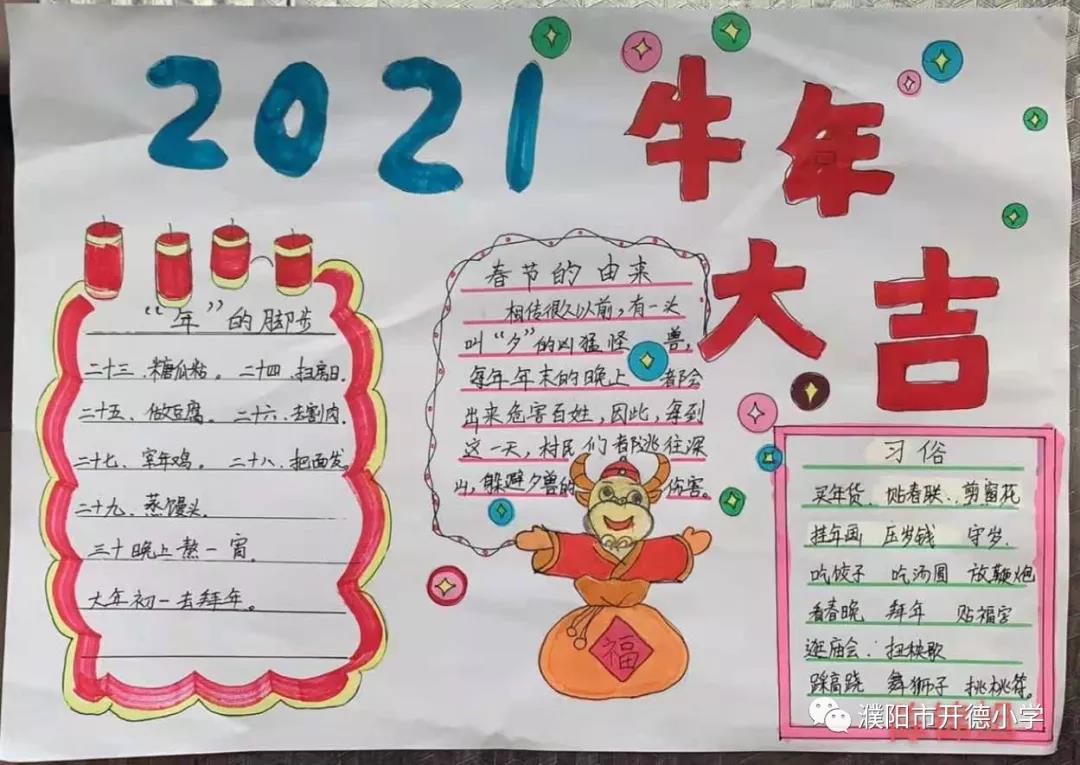 2021 牛年
大吉
“年”的脚步
二十三、糖瓜粘。 二十四、扫房日.
二十五、做豆腐。 二十六、去割肉.
二十七、宰年鸡。 二十八、把面发。
二十九、蒸馒头.
三十晚上熬一宵.
大年初一去拜年。
春节的由来
相传很久以前,有一头
叫“夕”的凶猛怪兽,
每年年末的晚上都会
出来危害百姓,因此,每到
这一天,村民们都逃往深
山,躲避夕兽的伤害。
福
习俗
买年货、贴春联、剪窗花
挂年画 压岁钱 守岁.
吃饺子 吃汤圆 放鞭炮
看春晚 拜年 贴福字
逛庙会: 扭秧歌
踩高跷 舞狮子 挑桃符。
濮阳市开德小学